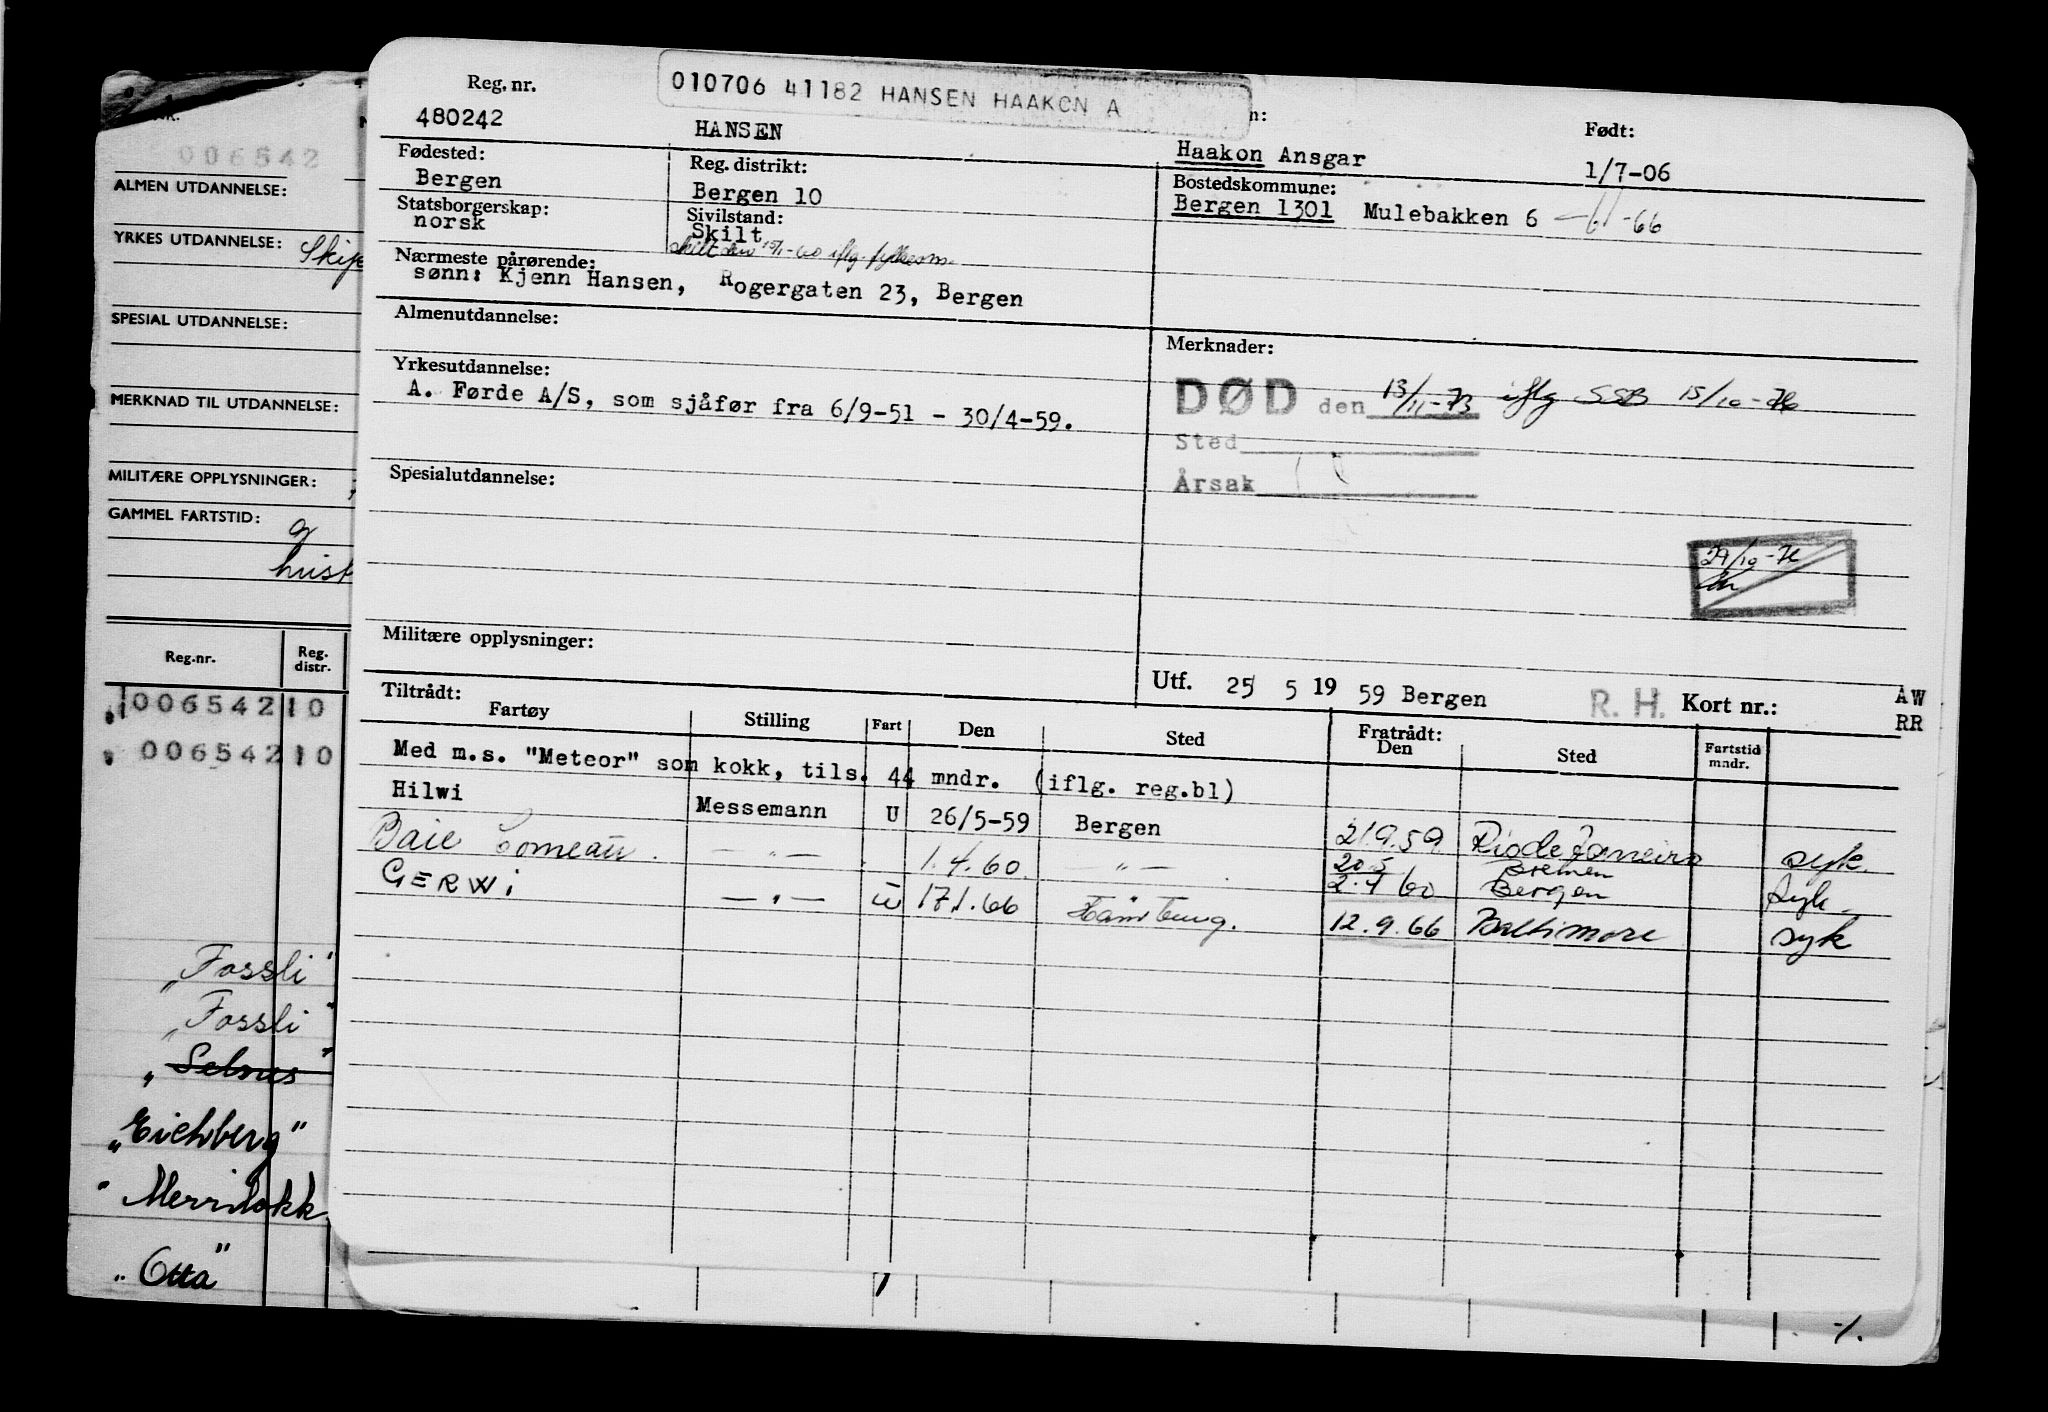 010706 41182 HANSEN HAAKON A
Reg. nr.
480242
HANSEN
Haakon Ansgar
Født:
1/7-06
Fødested:
Bergen
Reg. distrikt:
Bergen 10
Bostedskommune:
Bergen 1301 Mulebakken 6
-66
Statsborgerskap:
norsk
Sivilstand:
Skilt
Nærmeste pårørende:
sønn: Kjenn Hansen, Rogergaten 23, Bergen
Almenutdannelse:
Merknader:
Yrkesutdannelse:
A. Førde A/S, som sjåfør fra 6/9-51 - 30/4-59.
DØD den 13/11-73 iflg SSB 15/10-76
Sted
Årsak
Spesialutdannelse:
Militære opplysninger:
Utf. 25 5 19 59 Bergen R. H. Kort nr.: AW
RR
Tiltrådt:
Fartøy Stilling Fart Den Sted Fratrådt: Den Sted Fartstid mndr.
Med m.s. "Meteor" som kokk, tils. 44 mndr. (iflg. reg.bl)
Hilwi Messemann U 26/5-59 Bergen 21.9.59 Rio de Janeiro syk.
Baie Comeau - " - 1.4.60 - " - 20.5 Bremen
2.4 60 Bergen syk.
GERWI - " - u 17.1.66 Hamburg. 12.9.66 Baltimore syk
006542
ALMEN UTDANNELSE:
YRKES UTDANNELSE:
SPESIAL UTDANNELSE:
MERKNAD TIL UTDANNELSE:
MILITÆRE OPPLYSNINGER:
GAMMEL FARTSTID:
Reg.nr. Reg. distr.
006542 10
006542 10
"Fossli"
"Fossli"
"Selnes"
"Eichberg"
"Otta"